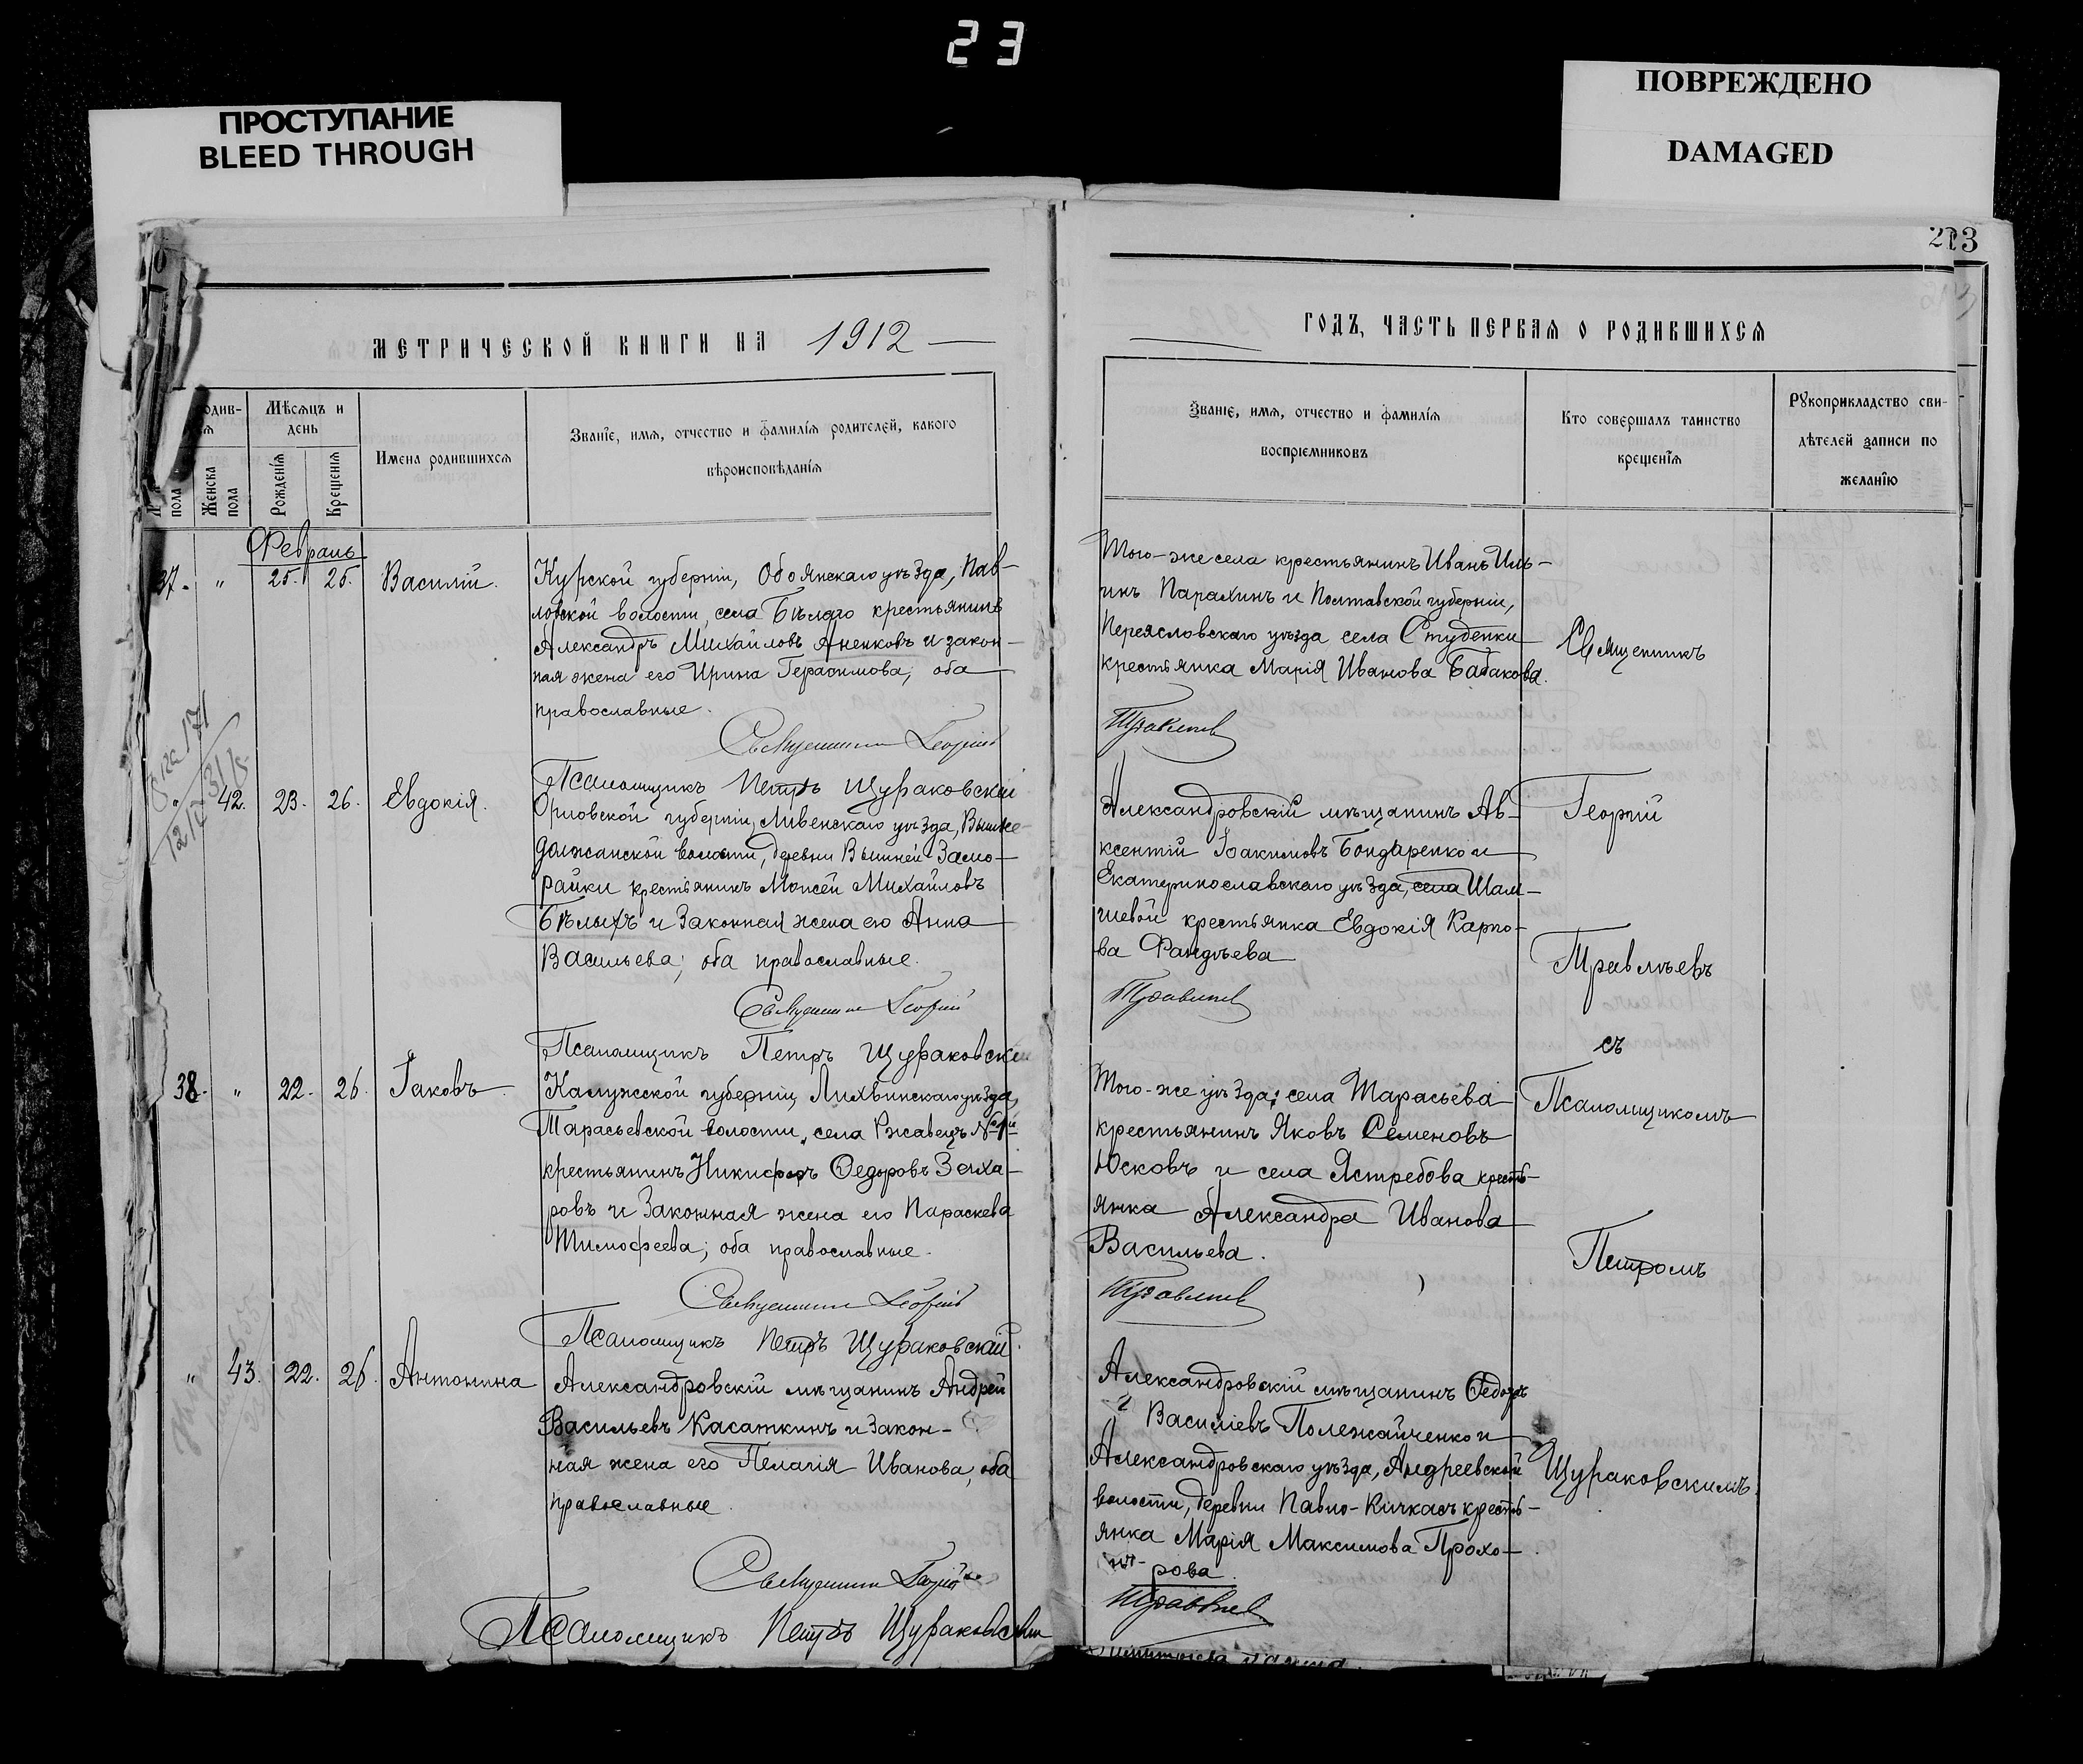 23
ПРОСТУПАНИЕ
BLEED THROUGH
ПОВРЕЖДЕНО
DAMAGED
213
МЕТРИЧЕСКОЙ КНИГИ НА 1912
одив-
ся
Мѣсяцъ и
день
пола
Женска
пола
Рожденія
Крещенія
Имена родившихся
Званіе, имя, отчество и фамилія родителей, какого
вѣроисповѣданія
Февраль
37. " 25. 25. Василій.
Курской губерніи, Обоянскаго уѣзда, Пав-
ловской волости, села Бѣлаго крестьянинъ
Александръ Михайловъ Аненковъ и закон-
ная жена его Ирина Герасимова; оба
православные.
Священникъ Георгій
Псаломщикъ Петръ Щураковскій
" 42. 23. 26. Евдокія.
Орловской губерніи, Ливенскаго уѣзда, Вышне-
должанской волости, деревни Вышней-Замо-
райки крестьянинъ Моисей Михайловъ
Бѣлыхъ и законная жена его Анна
Васильева; оба православные.
Священникъ Георгій
Псаломщикъ Петръ Щураковскій
38. " 22. 26. Іаковъ.
Калужской губерніи, Лихвинскаго уѣзда,
Тарасьевской волости, села Ржавецъ №1й
крестьянинъ Никифоръ Ѳедоровъ Заха-
ровъ и законная жена его Параскева
Тимофеева; оба православные.
Священникъ Георгій
Псаломщикъ Петръ Щураковскій.
" 43. 22. 26. Антонина
Александровскій мѣщанинъ Андрей
Васильевъ Касаткинъ и закон-
ная жена его Пелагія Иванова, оба
православные.
Священникъ Георгій
Псаломщикъ Петръ Щураковскій
ГОДЪ, ЧАСТЬ ПЕРВАЯ О РОДИВШИХСЯ
Званіе, имя, отчество и фамилія
воспріемниковъ
Кто совершалъ таинство
крещенія
Рукоприкладство сви-
дѣтелей записи по
желанію
Того-же села крестьянинъ Иванъ Иль-
инъ Парахинъ и Полтавской губерніи,
Переясловскаго уѣзда села Студенки
крестьянка Марія Иванова Бабакова.
Травлѣевъ
Александровскій мѣщанинъ Ав-
ксентій Іоакимовъ Бондаренко и
Екатеринославскаго уѣзда, села Шам-
шевой крестьянка Евдокія Карпо-
ва Фандѣева
Травлѣевъ
Того-же уѣзда; села Тарасьева
крестьянинъ Яковъ Семеновъ
Юсковъ и села Ястребова кресть-
янка Александра Иванова
Васильева.
Травлѣевъ
Александровскій мѣщанинъ Ѳедоръ
Василіевъ Полежайченко и
Александровскаго уѣзда, Андреевской
волости, деревни Павло-Кичкасъ кресть-
янка Марія Максимова Прохо-
рова.
Травлѣевъ
Священникъ
Георгій
Травлѣевъ
съ
Псаломщикомъ
Петромъ
Щураковскимъ.